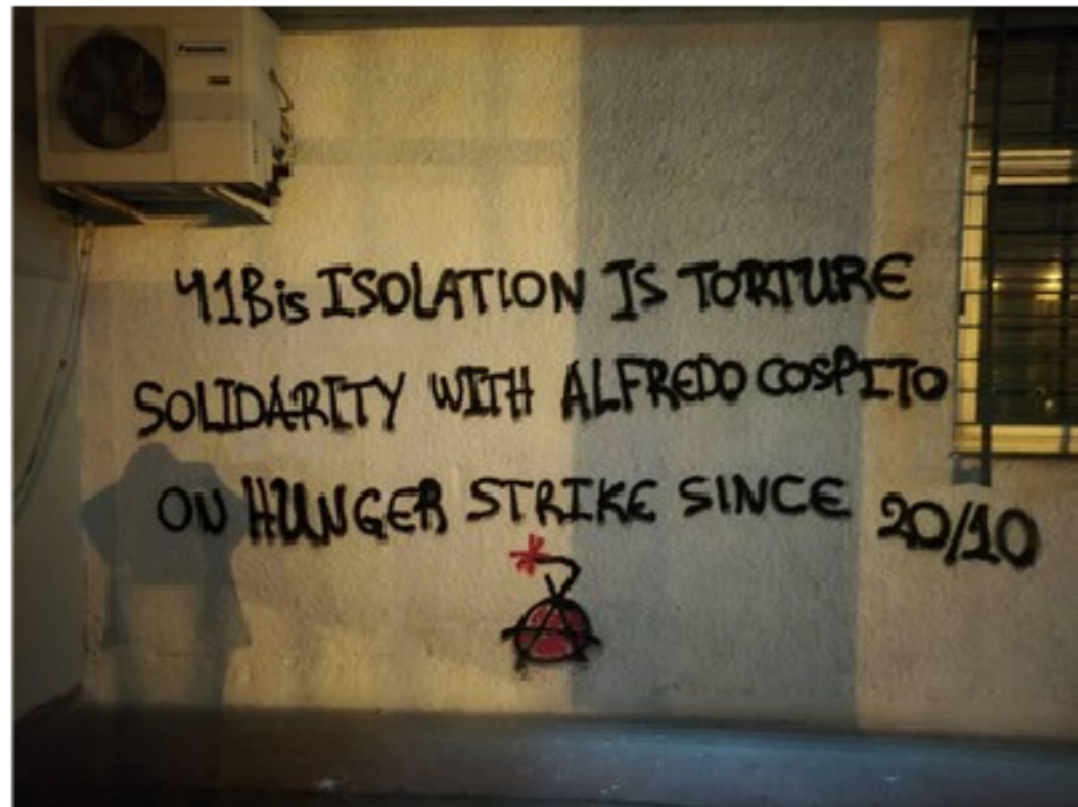 Panasonic
41Bis ISOLATION IS TORTURE
SOLIDARITY WITH ALFREDO COSPITO
ON HUNGER STRIKE SINCE 20/10